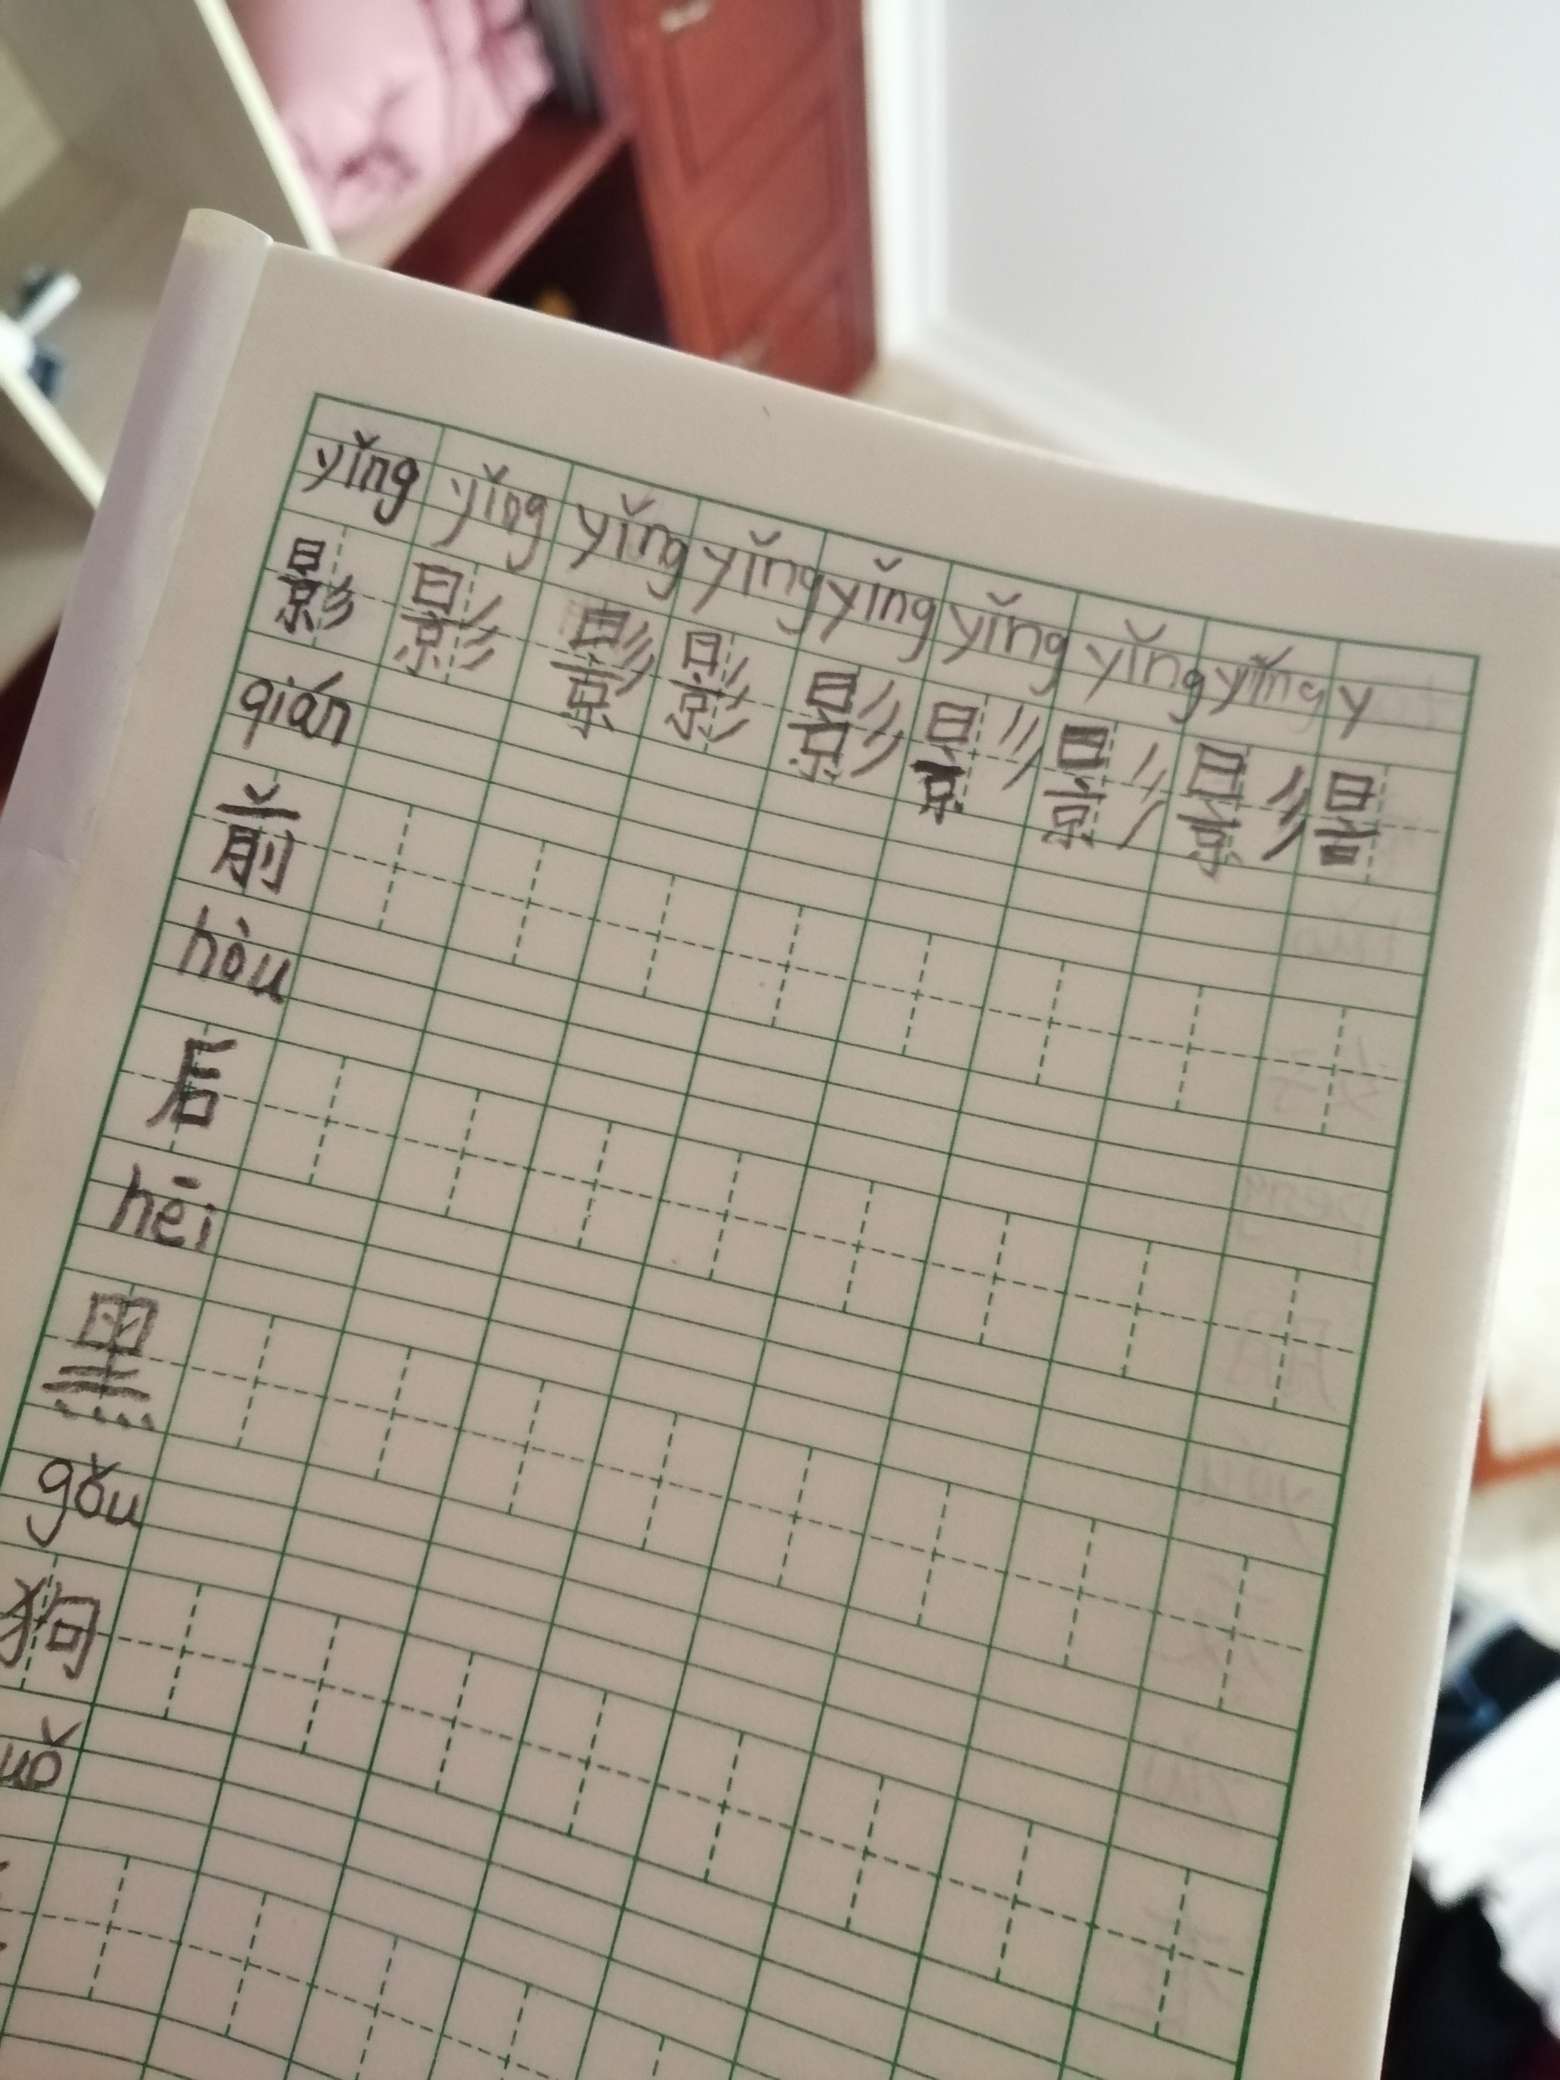 yǐng yǐng yǐng yǐng yǐng yǐng yǐng yǐng y
影 影 影 影 影 影 影 影
qián
前
hòu
后
hēi
黑
gǒu
狗
uǒ